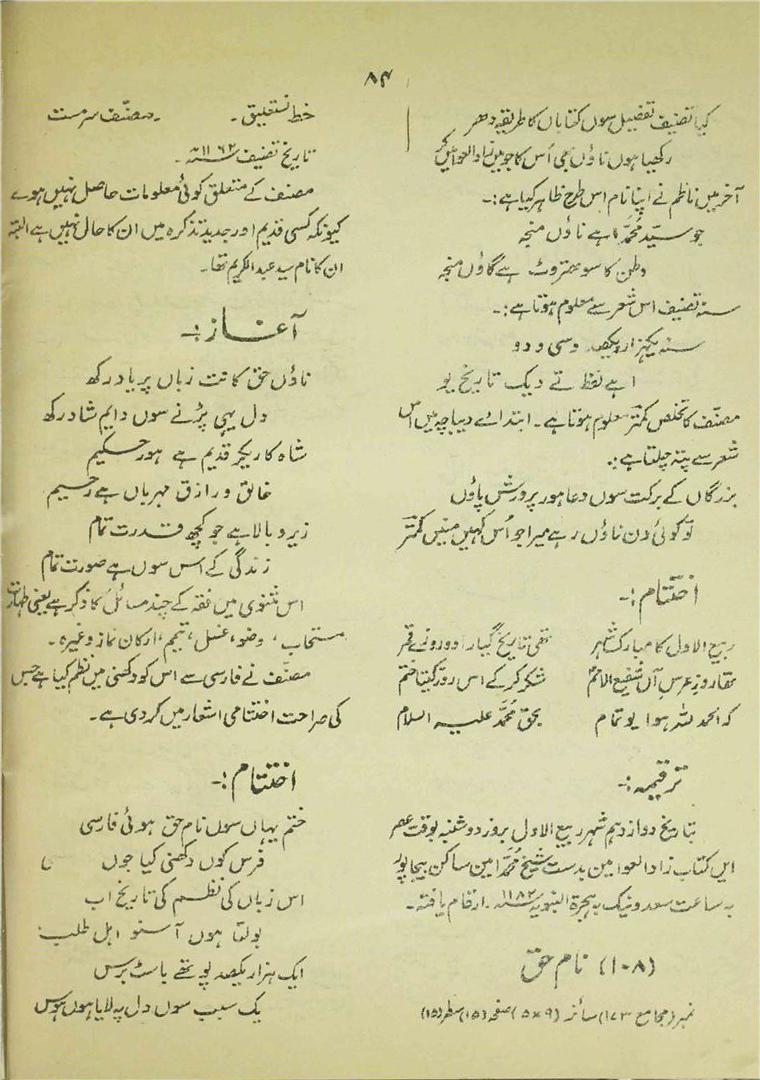 ۸۴
کیا تصنیف تفضیل سوں کتاباں کا طریقہ دھر
رکھیا ہوں ناؤں بھی اُس کا جو میں زاد العوامیں کر
آخر میں ناظم نے اپنا نام اس طرح ظاہر کیا ہے:۔
جو سیّد محمّد اہے ناؤں منجہ
وطن کا سو ہے گاؤں منجہ
سنہ تصنیف اس شعر سے معلوم ہوتا ہے:۔
سنہ یکہزار ویکصد وسی و دو
اہے لفظ تے دیک تاریخ یو
مصنّف کا تخلص کمتر معلوم ہوتا ہے۔ ابتدائے دیباچہ میں اس
شعر سے پتہ چلتا ہے:۔
بزرگاں کے برکت سوں دعا ہور پرورش پاؤں
تو کوئی دن ناؤں رہے میرا جو اُس کہیں میں کمتر
اختتام:۔
ربیع الاول کا مبارک شہر تھی تاریخ گیارا و دورونے قمر
تھا روزِ عرس آں شفیع الامم شکر کر کے اس روز کیتا ختم
کہ الحمد للہ ہوا یو تمام بحق محمّد علیہ السلام
ترقیمہ:۔
بتاریخ دوازدہم شہر ربیع الاول بروز دوشنبہ بوقت عصر
ایں کتاب زاد العوامین بدست شیخ محمّد امین ساکن بیجاپور
بہ ساعت سعد و نیک بہ ہجرۃ النبویہ ۱۱۸۲ سنہ ۔ ارقام یافتہ۔
(۱۰۸) نام حق
نمبر (مجامع ۱۷۳) سائز (۹×۵) صفحہ (۱۵) سطر (۱۵)
خط نستعلیق۔ ۔مصنّف سرمست
تاریخ تصنیف ۱۱۶۲ سنہ ۔
مصنف کے متعلق کوئی معلومات حاصل نہیں ہوے
کیونکہ کسی قدیم اور جدید تذکرہ میں ان کا حال نہیں ہے البتہ
ان کا نام سید عبد الکریم تھا۔
آغاز:۔
ناؤں حق کا نت زباں پر یاد رکھ
دل یہی پڑنے سوں دایم شاد رکھ
شاہ کاریگر قدیم ہے ہور حکیم
خالق و رازق مہرباں ہے رحیم
زیر و بالا ہے جو کچھ قدرت تمام
زندگی کے اسس سوں ہے صورت تمام
اس مثنوی میں فقہ کے چند مسائل کا ذکر ہے یعنی طہارت
مستحاب، وضو، غسل، تیمم، ارکان نماز وغیرہ۔
مصنّف نے فارسی سے اس کو دکھنی میں نظم کیا ہے جس
کی صراحت اختتامی اشعار میں کر دی ہے۔
اختتام:۔
ختم یہاں سوں نام حق ہوئی فارسی
فرس کوں دکھنی کیا جوں
اس زباں کی نظم کی تاریخ اب
بولتا ہوں آ سنو اہل طلب
ایک ہزار یکصد پو تھے باسٹ برس
یک سبب سوں دل پہ لایا ہوں ہوس